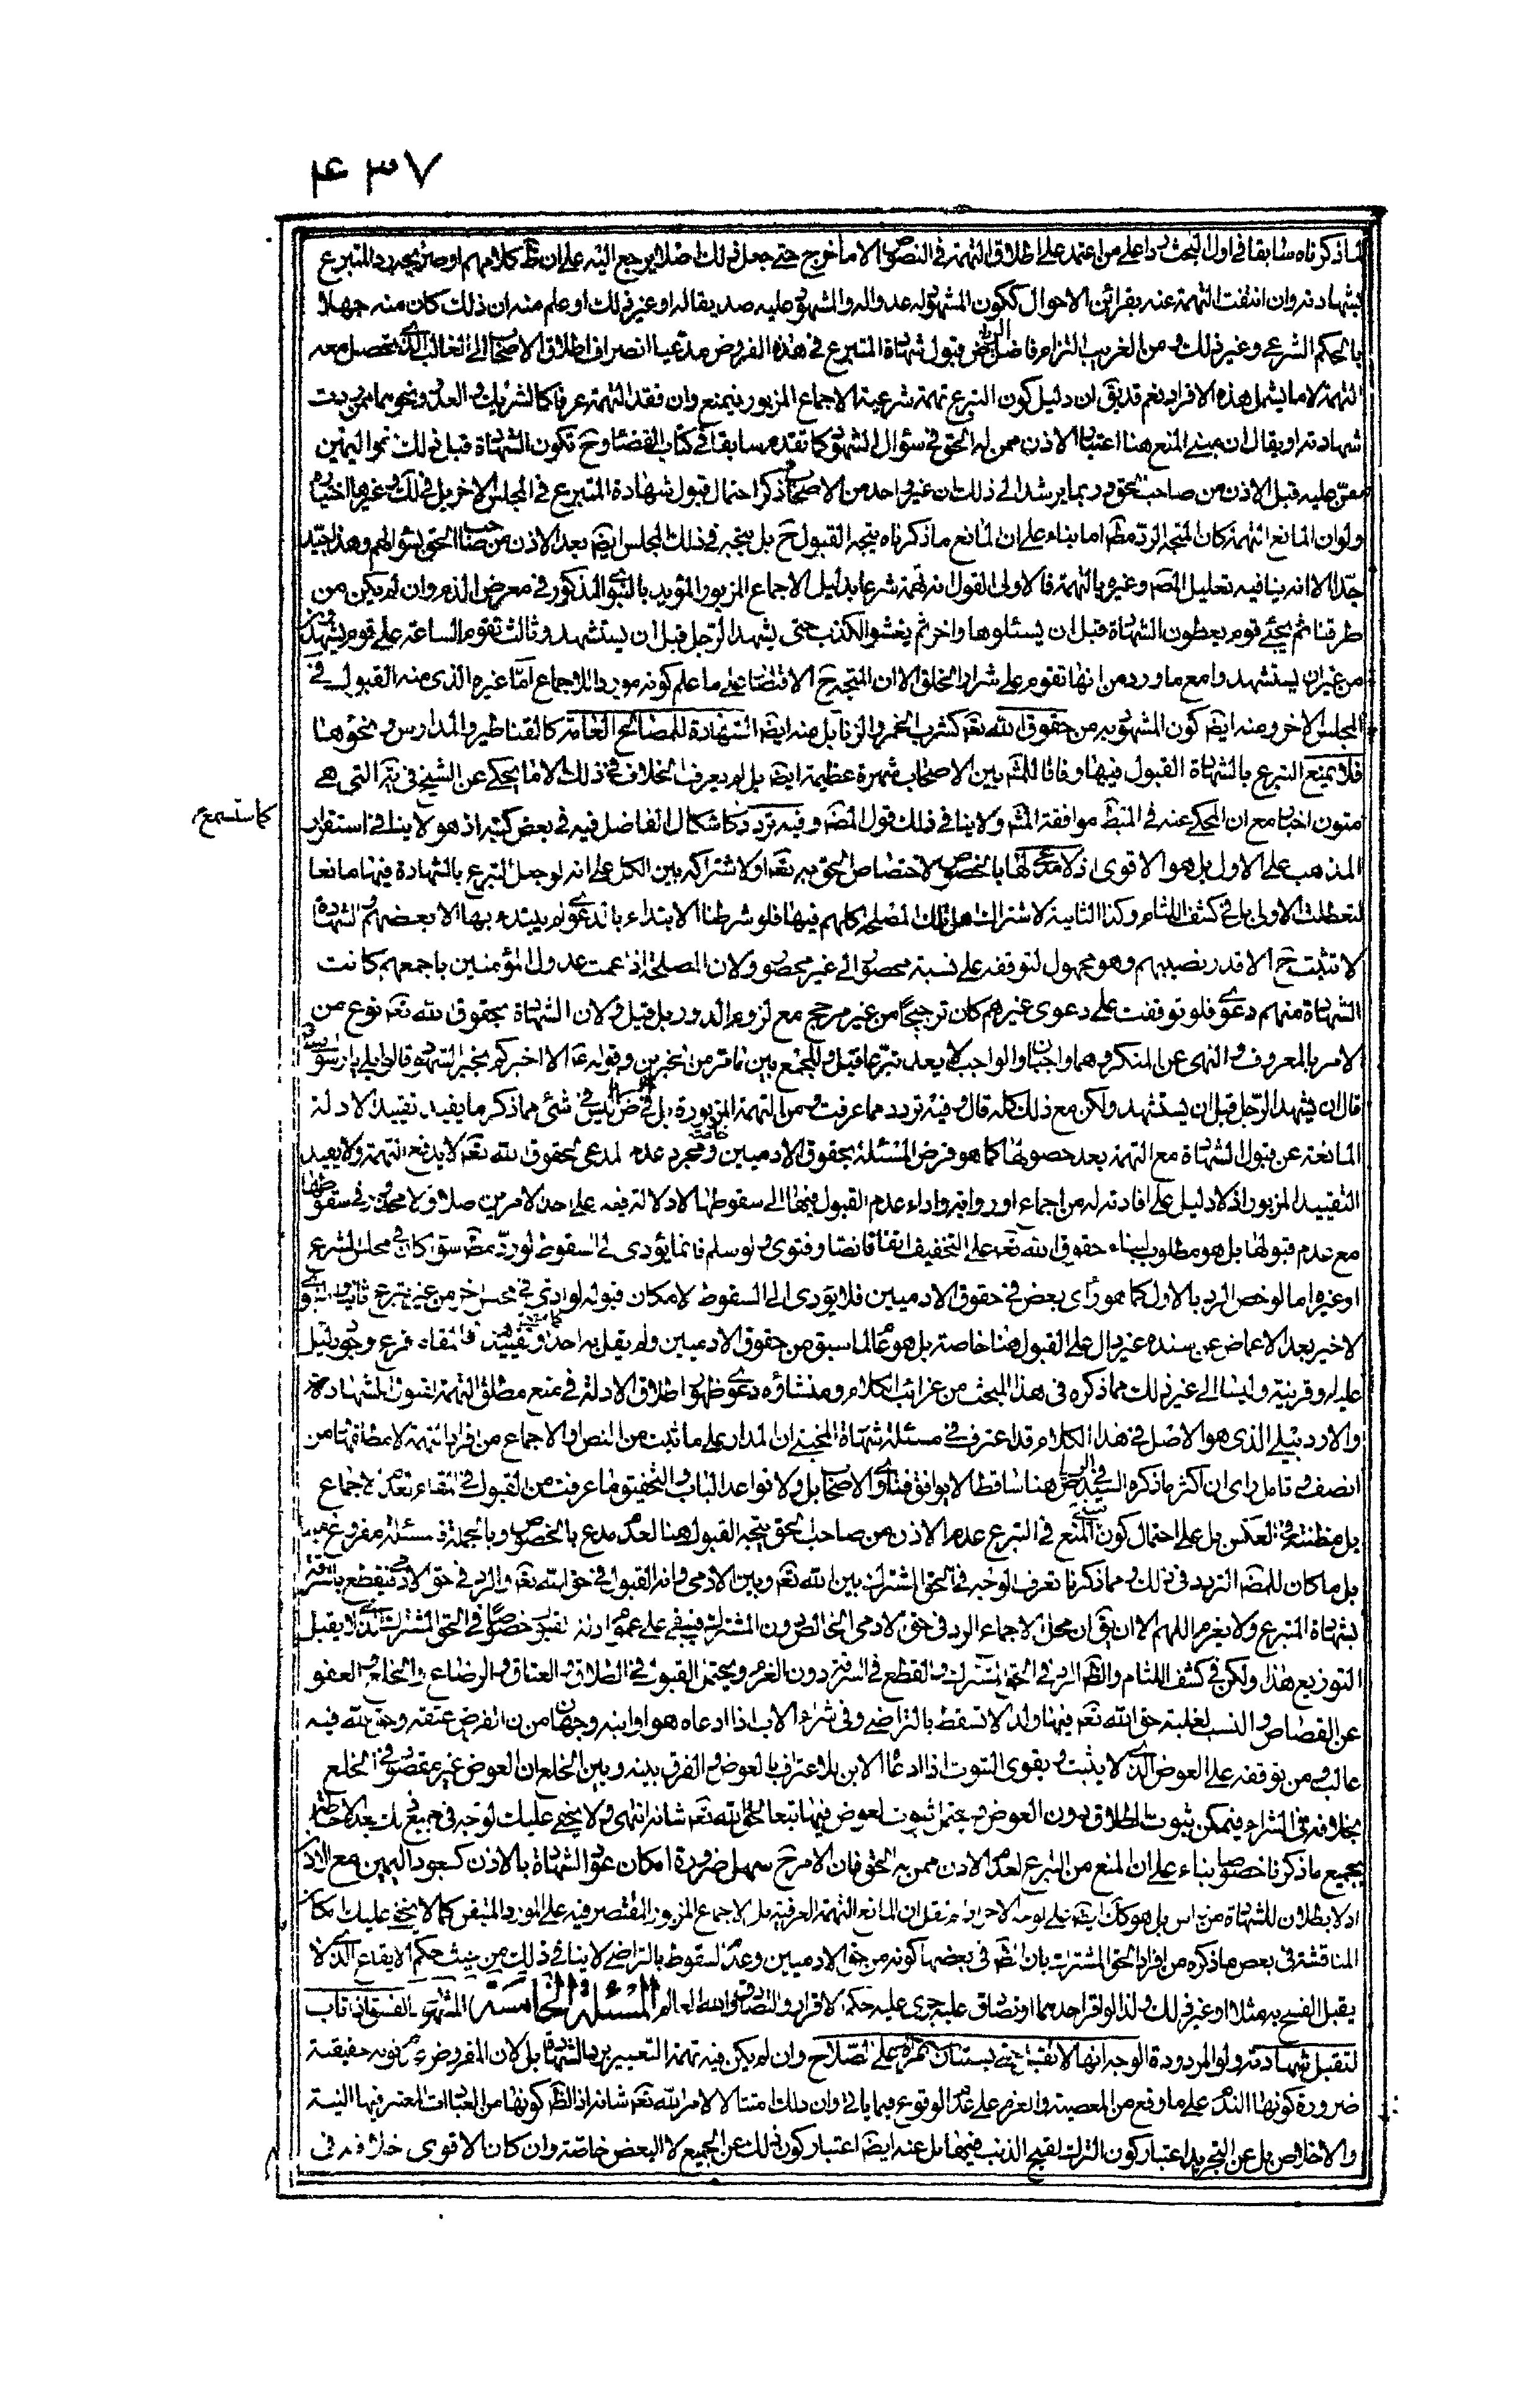 ۴۳۷
لما ذكرناه سابقا في اول البحث ردا على من اعتمد على اطلاق التهمة في النصوص الا ما خرج حتى جعل ذلك اصلا يرجع اليه على ان ظ كلامهم او صريحه رد المتبرع
بشهادته وان انتفت التهمة عنه بقرائن الاحوال ككون المشهود له عدوا له والمشهود عليه صديقا له او غير ذلك او علم منه ان ذلك كان منه جهلا
بالحكم الشرعي وغير ذلك ومن الغريب التزام فاضل الرياض قبول شهادة المتبرع في هذه الفروض مدعيا انصراف اطلاق الاصحاب الى الغالب الذي تحصل معه
التهمة لا ما يشمل هذه الافراد نعم قد يق ان دليل كون التبرع تهمة شرعية الاجماع المزبور فيمنع وان فقد التهمة عرفا كالشريك والعدو ونحوهما ممن ردت
شهادته او يقال ان مبنى المنع هنا اعتبار الاذن ممن له الحق في سؤال الشهود كما تقدم سابقا في كتاب القضاء وح تكون الشهادة قبل ذلك نحو اليمين
ممن عليه قبل الاذن من صاحب الحق وربما يرشد الى ذلك ان غير واحد من الاصحاب ذكر احتمال قبول شهادة المتبرع في المجلس الاخر بل في ذلك وغيرها اختياره
ولو ان المانع التهمة كان المتجه الرد مطم اما بناء على ان المانع ما ذكرناه يتجه القبول ح بل يتجه في ذلك المجلس ايضا بعد الاذن من صاحب الحق بسؤالهم وهذا جيد
جدا الا انه ينافيه تعليل المصم وغيره بالتهمة فالاولى القول انه تهمة شرعا بدليل الاجماع المزبور المؤيد بالنبوي المذكور في معرض الذم وان لم يكن من
طرقنا ثم يجئ قوم يعطون الشهادة قبل ان يسئلوها واخر ثم يفشو الكذب حتى يشهد الرجل قبل ان يستشهد وثالث تقوم الساعة على قوم يشهدون
من غير ان يستشهدوا مع ما ورد من انها تقوم على شرار الخلق الا ان المتجه ح الاقتصار على ما علم كونه موردا للاجماع اما غيره الذي منه القبول في
المجلس الاخر ومنه ايضا كون المشهود به من حقوق الله تعم كشرب الخمر والزنا بل منه ايضا الشهادة للمصالح العامة كالقناطير والمدارس ونحو هنا
فلا يمنع التبرع بالشهادة القبول فيها وفاقا للمش بين الاصحاب شهرة عظيمة ايضا بل لم يعرف الخلاف في ذلك الا ما يحكى عن الشيخ في ية التي هي
متون اخبار مع ان المحكي عنه في المبسط موافقة المش ولا ينافي ذلك قول المصم وفيه تردد كاشكال الفاضل فيه في بعض كتبه اذ هو لا ينافي استقرار
كما ستسمع
المذهب على الاول بل هو الاقوى اذ لا مدعي لها بالخصوص لاختصاص الحق به تعم او لاشتراكه بين الكل على انه لو جعل التبرع بالشهادة فيها مانعا
لتعطلت الاولى بل في كشف اللثام وكذا الثانية لاشتراك اهل تلك المصلحة كلهم فيها فلو شرطنا الابتداء بالدعوى لم يبتده بها الا بعضهم والشهادة
لا تثبت ح الا قدر نصيبهم وهو مجهول لتوقفه على نسبة محصور الى غير محصور ولان المصلحة اذا عمت عدول المؤمنين باجمعهم كانت
الشهادة منهم دعوى فلو توقفت على دعوى غيرهم كان ترجيحا من غير مرجح مع لزوم الدور بل قيل ولان الشهادة بحقوق الله تعم نوع من
الامر بالمعروف والنهي عن المنكر وهما واجبان والواجب لا يعد تبرعا قيل وللجمع بين ما مر من الخبرين وقوله عم الا اخبركم بخير الشهود قالوا بلى يا رسول الله
قال ان يشهد الرجل قبل ان يستشهد ولكن مع ذلك كله قال وفيه تردد مما عرفت ومن التهمة المزبورة بل في الرياض ليس في شئ مما ذكر ما يفيد تقييد الادلة
المانعة عن قبول الشهادة مع التهمة بعد حصولها كما هو فرض المسئلة بحقوق الادميين خاصة ومجرد عدم المدعي لحقوق الله تعم لا يدفع التهمة ولا يفيد
التقييد المزبور اذ لا دليل على افادته له من اجماع او رواية واداء عدم القبول فيها الى سقوطها لا دلالة فيه على احد الامرين اصلا ولا محذور في سقوطها
مع عدم قبولها بل هو مطلوب لبناء حقوق الله تعم على التخفيف اتفاقا نصا وفتوى ولو سلم فانما يؤدى الى السقوط لو رد مطم سواء كان في مجلس الشرع
او غيره اما لو خص الرد بالاول كما هو رأى بعض في حقوق الادميين فلا يؤدى الى السقوط لامكان قبوله لو ادى في مجلس اخر من غير تبرع ثانيا والنبوي
الاخير بعد الاغماض عن سنده غير دال على القبول هنا خاصة بل هو عام لما سبق من حقوق الادميين ولم يقل به احد وتقييده بما هنا فرع وجود دليل
عليه او قرينة وليسا الى غير ذلك مما ذكره في هذا المبحث من غرائب الكلام ومنشاؤه دعوى ظهور اطلاق الادلة في منع مطلق التهمة لقبول الشهادة
والاردبيلي الذي هو الاصل في هذا الكلام قد اعترف في مسئلة شهادة المختبى ان المدار على ما ثبت من النص او الاجماع من افراد التهمة لا مطلقها من
انصف وتامل راى ان اكثر ما ذكره السيد في الرياض هنا ساقط لا يوافق فتاوى الاصحاب بل ولا قواعد الباب والتحقيق ما عرفت من القبول في انتفاء الاجماع
بل مظنته في العكس بل على احتمال كون المنع في التبرع عدم الاذن من صاحب الحق يتجه القبول هنا لعدم مدع بالخصوص وبالجملة فالمسئلة مفروغ منها
بل ما كان للمصم التردد في ذلك ومما ذكرنا تعرف الوجه في الحق المشترك بين الله تعم وبين الادمي وانه القبول في حق الله تعم والرد في حق الادمي فيقطع بالسرقة
بشهادة المتبرع ولا يغرم اللهم الا ان يق ان محل الاجماع الرد في حق الادمي الخالص دون المشترك فيبقى على عموم ادلة القبول خصوصا في الحق المشترك الذي لا يقبل
التوزيع هذا ولكن في كشف اللثام والظم الرد في الحق المشترك والقطع في السرقة دون الغرم ويحتمل القبول في الطلاق والعتاق والرضاع والخلع والعفو
عن القصاص والنسب لغلبة حق الله تعم فيها ولذا لا تسقط بالتراضي وفي شراء الاب اذا ادعاه هو او ابنه وجهان من ان الغرض عتقه وحق الله فيه
غالب ومن توقفه على العوض الذي لا يثبت ويقوى الثبوت اذا ادعاه الابن للاعتراف بالعوض والفرق بينه وبين الخلع ان العوض غير مقصود في الخلع
بخلافه في الشراء فيمكن ثبوت الطلاق بدون العوض ويحتمل ثبوت العوض فيها تبعا لحق الله تعم شانه انتهى ولا يخفى عليك الوجه في جميع ذلك بعد الاحاطة
بجميع ما ذكرنا خصوصا بناء على ان المنع من التبرع لعدم الاذن ممن به الحق فان الامر ح سهل ضرورة امكان عود الشهادة بالاذن كعود اليمين مع الاذن
اذ لا بطلان للشهادة من راس بل هو كك ايضا على الوجه الاخر اذا لم نقل ان المانع التهمة العرفية بل الاجماع المزبور المقتصر فيه على المورد المتيقن كما لا يخفى عليك مكان
المناقشة في بعض ما ذكره من افراد الحق المشترك بان الظم في بعضها كونه من حق الادميين وعدم السقوط بالتراضي لا ينافي ذلك من حيث حكم الايقاع الذي لا
يقبل الفسخ به مثلا او غير ذلك ولذا لو اقر احدهما او تصادقا عليه جرى عليه حكم الاقرار والتصادق والله العالم المسئلة الخامسة المشهور بالفسق اذا تاب
لتقبل شهادته ولو المردودة الوجه انها لا تقبل حتى يستبان استمراره على الصلاح وان لم يكن فيه تهمة التعيير برد الشهادة بل لان المفروض عدم توبته حقيقة
ضرورة كونها الندم على ما وقع من المعصية والعزم على عدم الوقوع فيما ياتي وان ذلك امتثالا لامر الله تعم شانه اذ الظم كونها من العبادات المعتبر فيها النية
والاخلاص بل عن التجريد اعتبار كون الترك لقبح الذنب فيها بل عنه ايضا اعتبار كون ذلك عن الجميع لا البعض خاصة وان كان الاقوى خلافه في